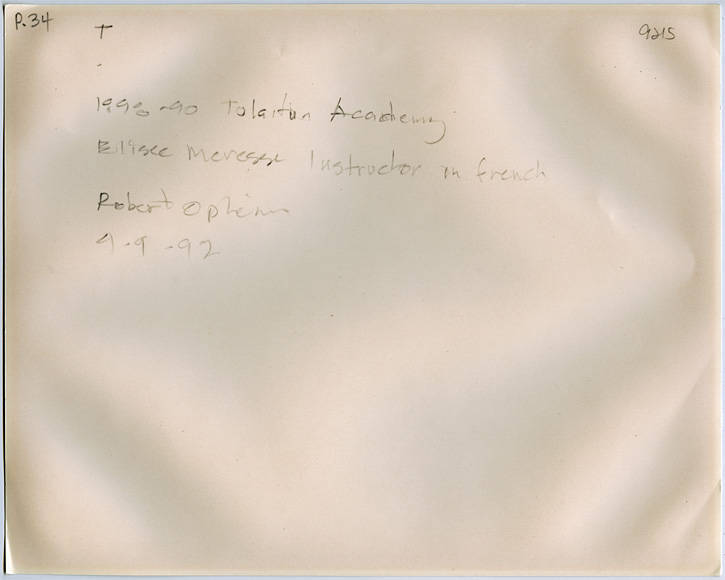 P.34
T
9215
1998-90 Tolaitun Academy
Ellsee Meresse Instructor in french
Robert
9.9.92